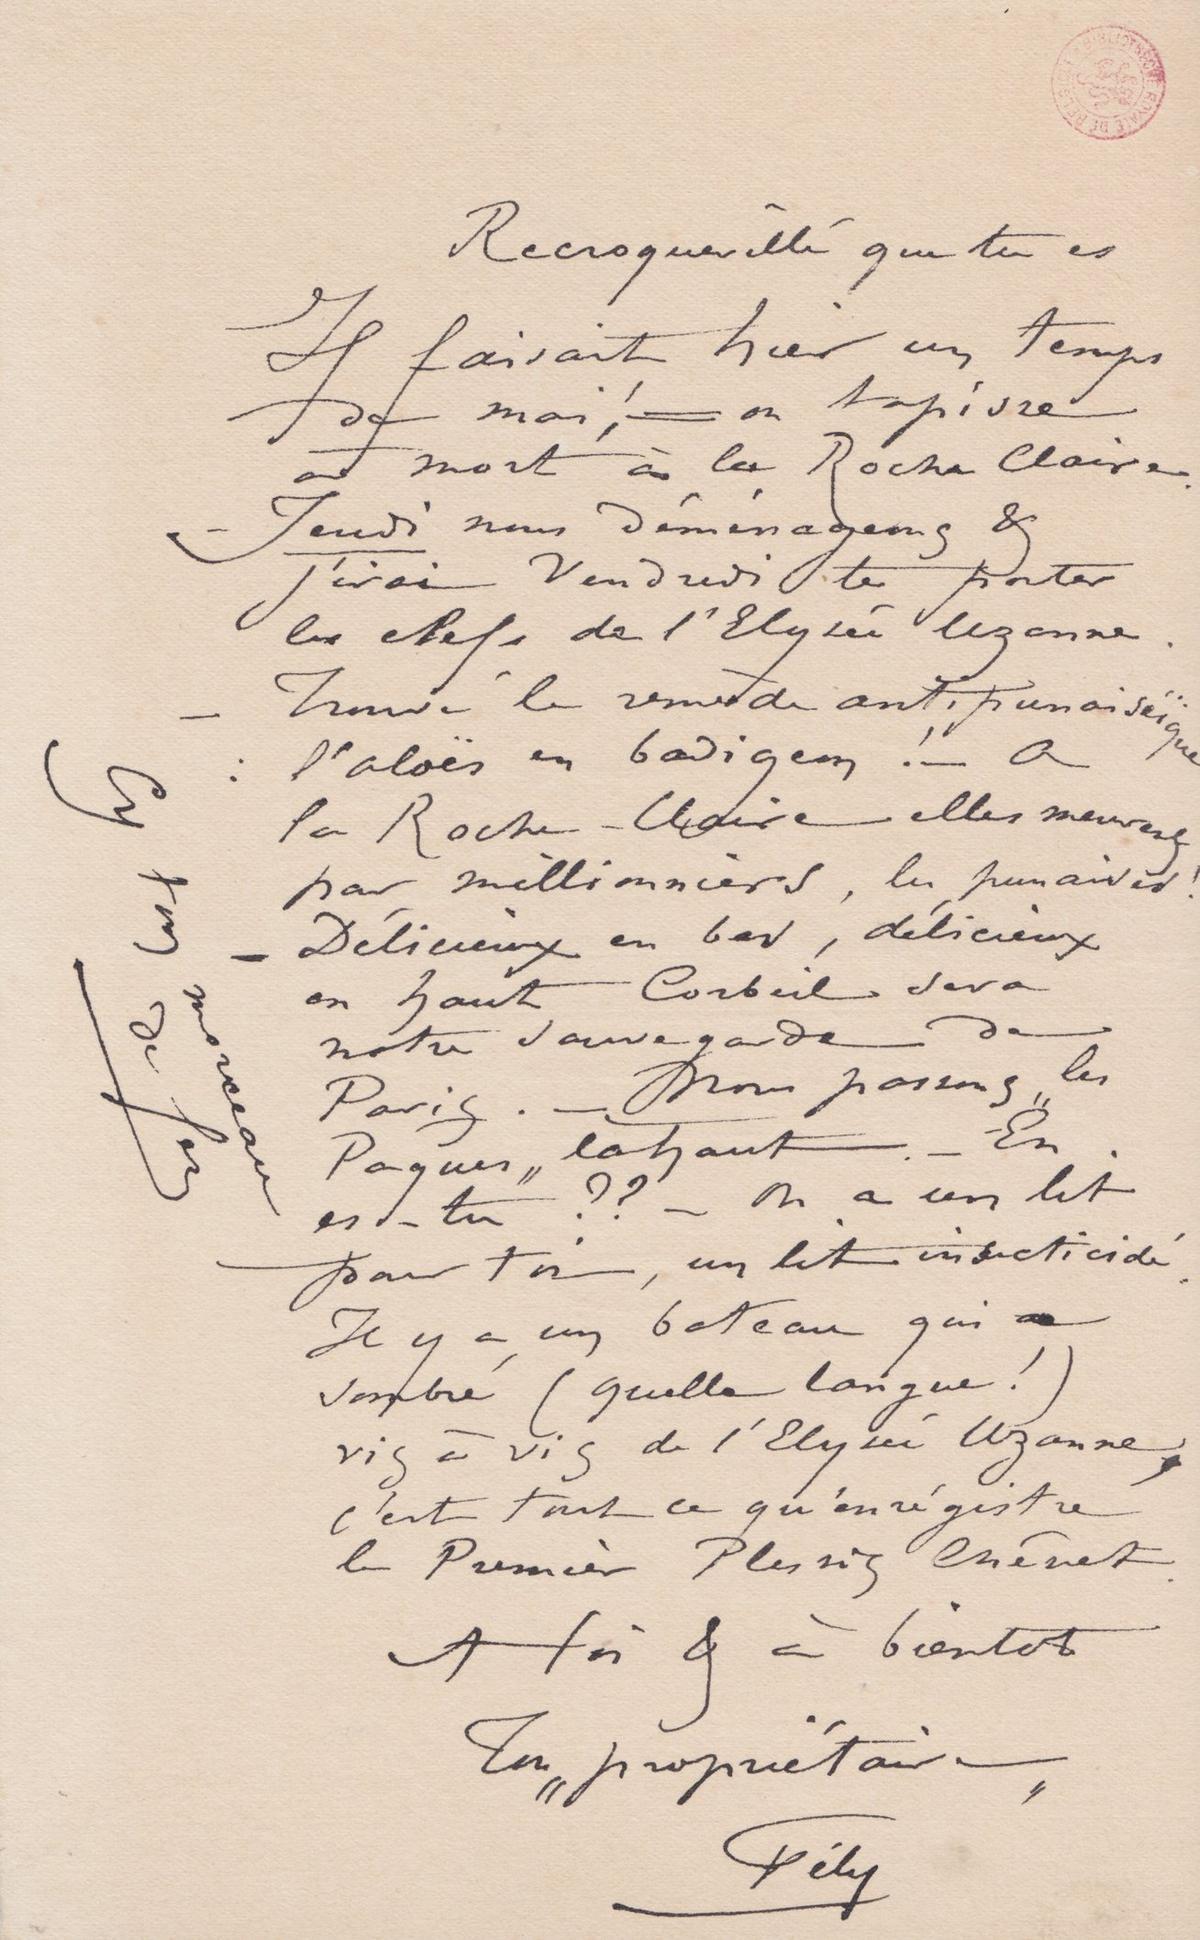 BIBLIOTHÈQUE ROYALE DE BELGIQUE
Recroquevillé que tu es
Il faisait hier un temps
de mai! = on tapisse
a mort à la Roche Claire.
- Jeudi nous déménageons &
j'irai Vendredi te porter
les clefs de l'Elysée Uzanne.
- Trouvé le remède antipunaiséïque
: l'aloës en badigeon ! — A
la Roche-Claire elles meurent
par millionnièrs, les punaises!
- Délicieux en bas, délicieux
en haut Corbeil sera
notre sauvegarde de
Paris. — Nous passons „les
Paques„ lahaut. — En
es-tu ?? — On a un lit
pour toi, un lit insecticidé.
Il y a un bateau qui a
sombré (quelle langue!)
vis à vis de l'Elysée Uzanne,
c'est tout ce qu'enrégistre
le Premier Plessis Chênet.
A toi & à bientot
Ton „propriétaire„
Fély
morceau
de